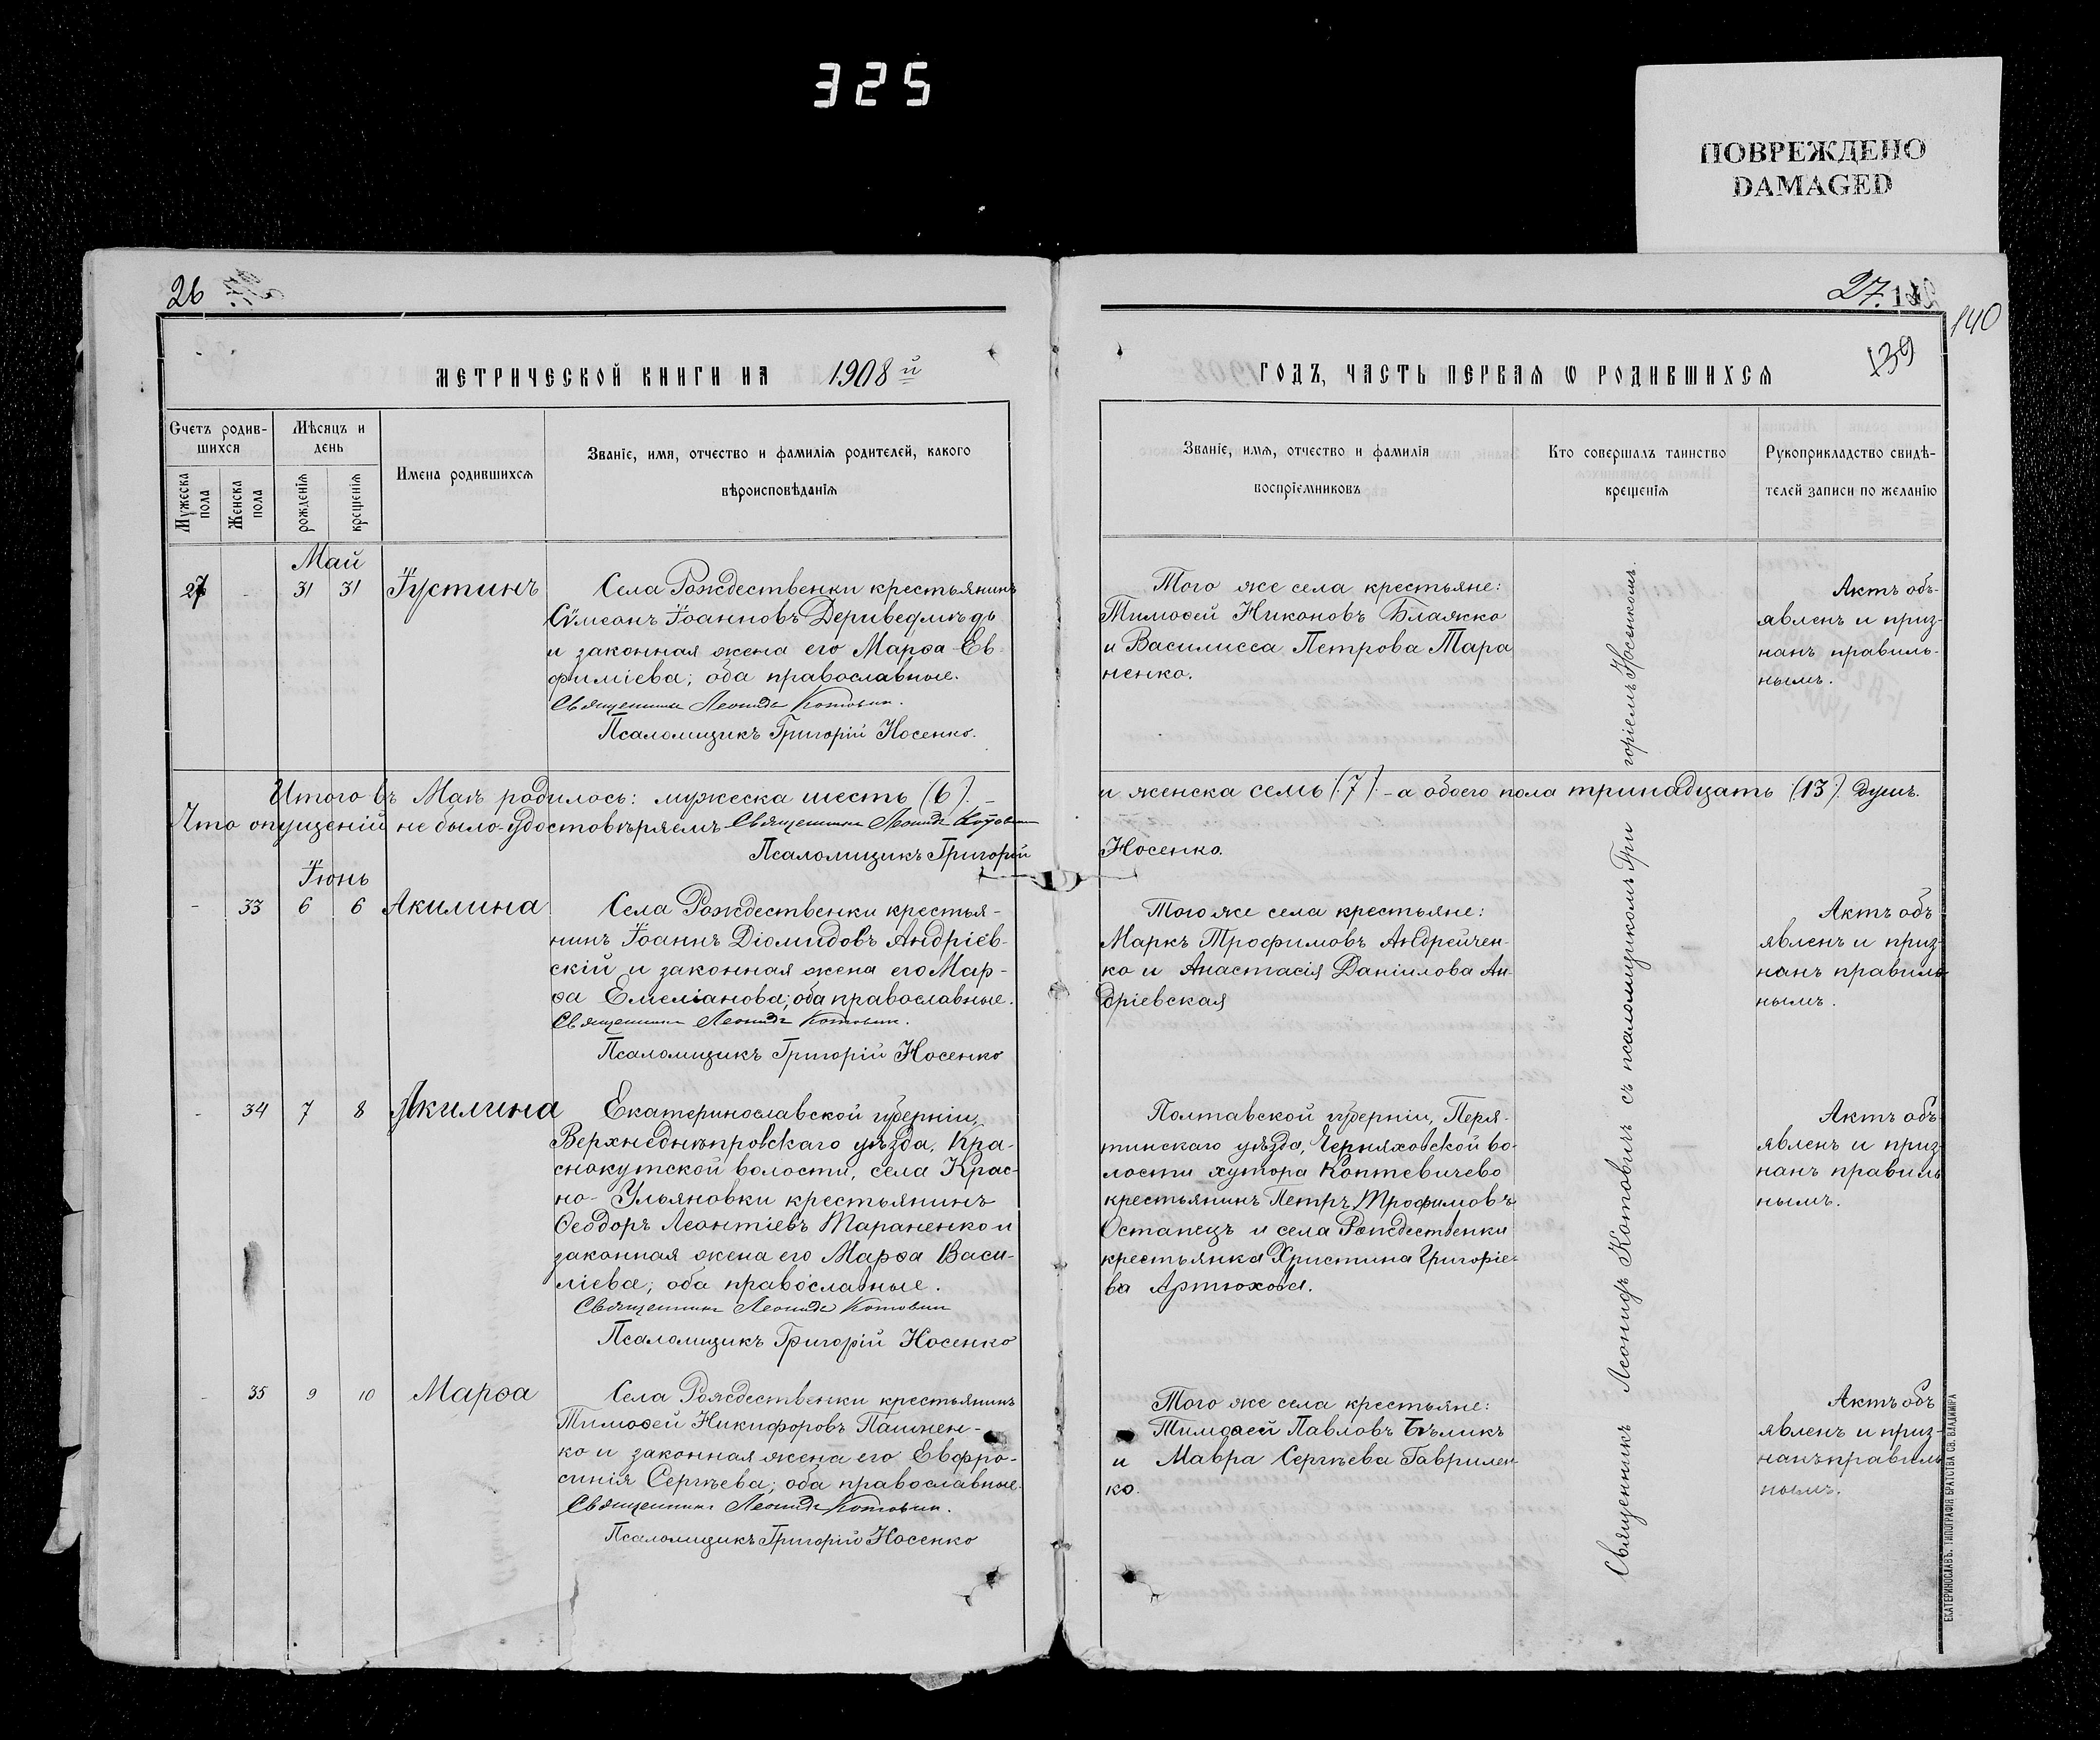 325
ПОВРЕЖДЕНО
DAMAGED
26
27.
140
139
МЕТРИЧЕСКОЙ КНИГИ НА 1908й
ГОДЪ, ЧАСТЬ ПЕРВАЯ Ѡ РОДИВШИХСЯ
Счетъ родив-
шихся
Мужеска
пола
Женска
пола
Мѣсяцъ и
день
рожденія
крещенія
Имена родившихся
Званіе, имя, отчество и фамилія родителей, какого
вѣроисповѣданія
Званіе, имя, отчество и фамилія
воспріемниковъ
Кто совершалъ таинство
крещенія
Рукоприкладство свидѣ-
телей записи по желанію
Май
27 - 31 31 Іустинъ
Села Рождественки крестьянинъ
Сѵмеонъ Іоанновъ Дериведмѣдь
и законная жена его Марѳа Ев-
фиміева; оба православные.
Священникъ Леонидъ Котовичъ.
Псаломщикъ Григорій Носенко.
Того же села крестьяне:
Тимоѳей Никоновъ Блажко
и Василисса Петрова Тара
ненко.
Актъ объ-
явленъ и приз-
нанъ правиль-
нымъ.
Итого въ Маѣ родилось: мужеска шесть (6). -
и женска семь (7) - а обоего пола тринадцать (13) душъ.
Что опущеній не было-удостовѣряемъ Священникъ Леонидъ Котовичъ
Псаломщикъ Григорій
Носенко.
Іюнь
- 33 6 6 Акилина
Села Рождественки крестья-
нинъ Іоаннъ Діомидовъ Андріев-
скій и законная жена его Мар-
ѳа Емеліанова; оба православные.
Священникъ Леонидъ Котовичъ.
Псаломщикъ Григорій Носенко
Того же села крестьяне:
Маркъ Трофимовъ Андрейчен-
ко и Анастасія Даніилова Ан-
дріевская
Актъ объ
явленъ и приз-
нанъ правиль-
нымъ.
- 34 7 8 Акилина
Екатеринославской губерніи,
Верхнеднѣпровскаго уѣзда, Кра-
снокутской волости, села Крас-
но-Ульяновки крестьянинъ
Ѳеодоръ Леонтіевъ Тараненко и
законная жена его Марѳа Васи-
ліева; оба православные.
Священникъ Леонидъ Котовичъ
Псаломщикъ Григорій Носенко
Полтавской губерніи, Перя-
тинскаго уѣзда, Черняховской во-
лости хутора Коптевичево
крестьянинъ Петръ Трофимовъ
Остапецъ и села Рождественки
крестьянка Христина Григоріе-
ва Артюхова.
Актъ объ
явленъ и приз-
нанъ правиль
нымъ.
- 35 9 10 Марѳа
Села Рождественки крестьянинъ
Тимоѳей Никифоровъ Пашнен-
ко и законная жена его Евфро-
синія Сергѣева; оба православные.
Священникъ Леонидъ Котовичъ.
Псаломщикъ Григорій Носенко
Того же села крестьяне:
Тимоѳей Павловъ Бѣликъ
и Мавра Сергѣева Гаврилен-
ко.
Актъ объ
явленъ и приз-
нанъ правиль
нымъ.
Священникъ Леонидъ Котовичъ съ псаломщикомъ Гри
горіемъ Носенкомъ.
ЕКАТЕРИНОСЛАВЪ. ТИПОГРАФІЯ БРАТСТВА СВ. ВЛАДИМІРА